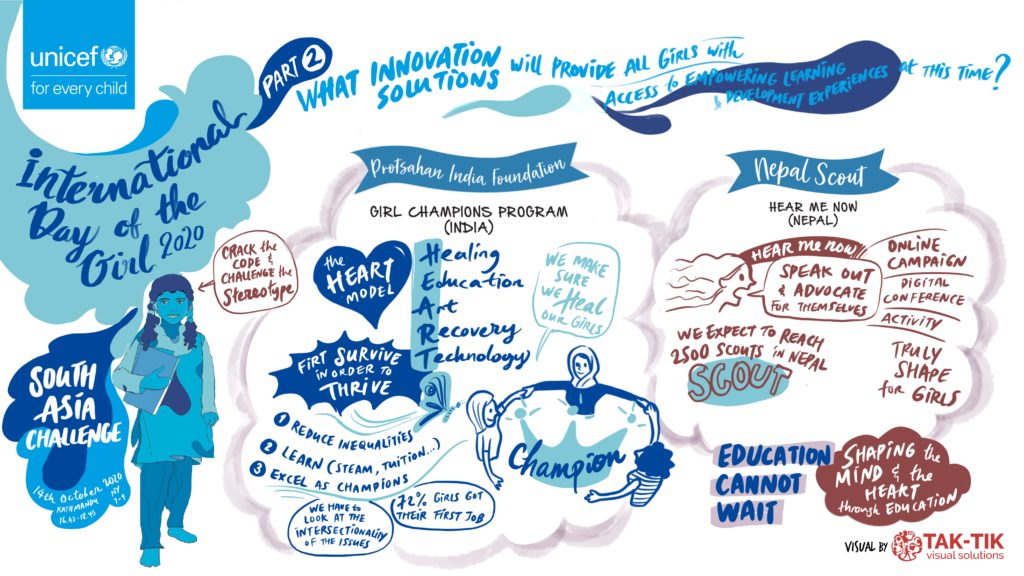 unicef
for every child
International
Day of the
Girl 2020
PART 2
WHAT INNOVATION
SOLUTIONS
will PROVIDE ALL GIRLS with
ACCESS to EMPOWERING LEARNING
& DEVELOPMENT EXPERIENCES
at THIS TIME?
CRACK the
CODE &
CHALLENGE the
Stereotype
SOUTH
ASIA
CHALLENGE
14th October 2020
KATHMANDU
16.45-18.45
NY
7-9
Protsahan India Foundation
GIRL CHAMPIONS PROGRAM
(INDIA)
the
HEART
MODEL
Healing
Education
Art
Recovery
Technology
WE MAKE
SURE
WE Heal
OUR GIRLS
FIRT SURVIVE
IN ORDER TO
THRIVE
1 REDUCE INEQUALITIES
2 LEARN (STEAM, TUITION...)
3 EXCEL AS CHAMPIONS
Champion
WE HAVE to
LOOK AT THE
INTERSECTIONALITY
OF THE ISSUES
72% GIRLS GOT
THEIR FIRST JOB
Nepal Scout
HEAR ME NOW
(NEPAL)
HEAR me NOW
SPEAK OUT
& ADVOCATE
FOR THEMSELVES
ONLINE
CAMPAIGN
DIGITAL
CONFERENCE
ACTIVITY
TRULY
SHAPE
for GIRLS
WE EXPECT TO REACH
2500 SCOUTS IN NEPAL
SCOUT
EDUCATION
CANNOT
WAIT
SHAPING the
MIND & the
HEART
through EDUCATION
VISUAL BY
TAK-TIK
visual solutions